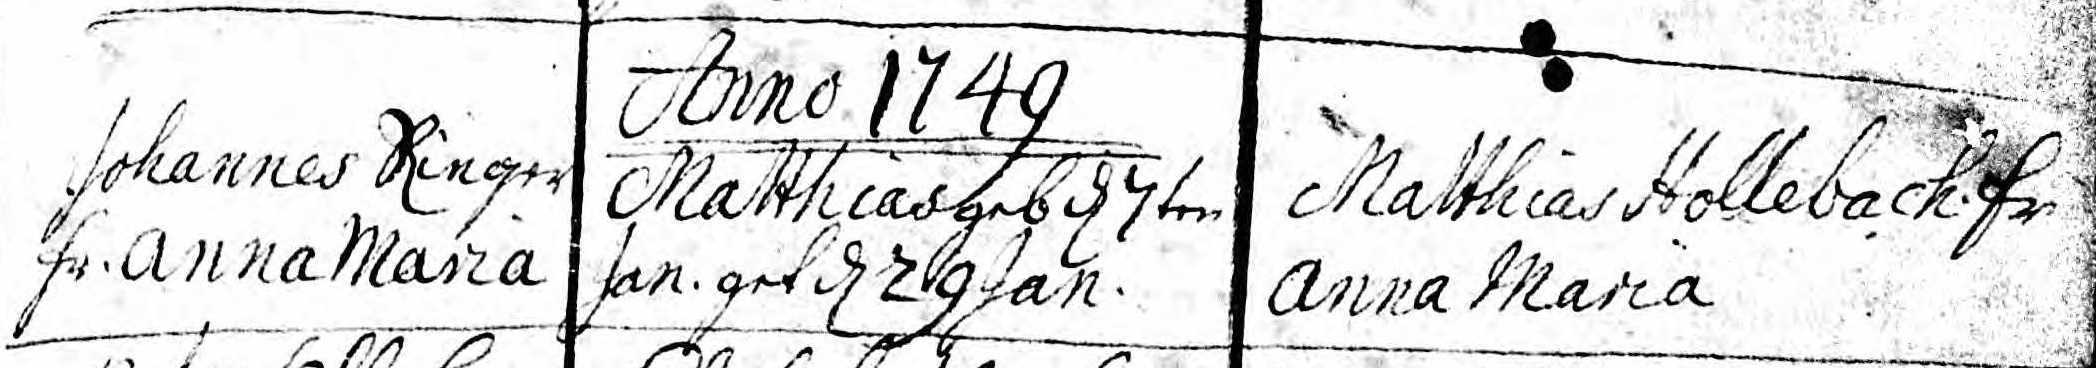 Anno 1749
Johannes Ringer
fr. Anna Maria
Matthias geb d 7ten
Jan. get d 29 Jan.
Matthias Hollebach. fr
Anna Maria